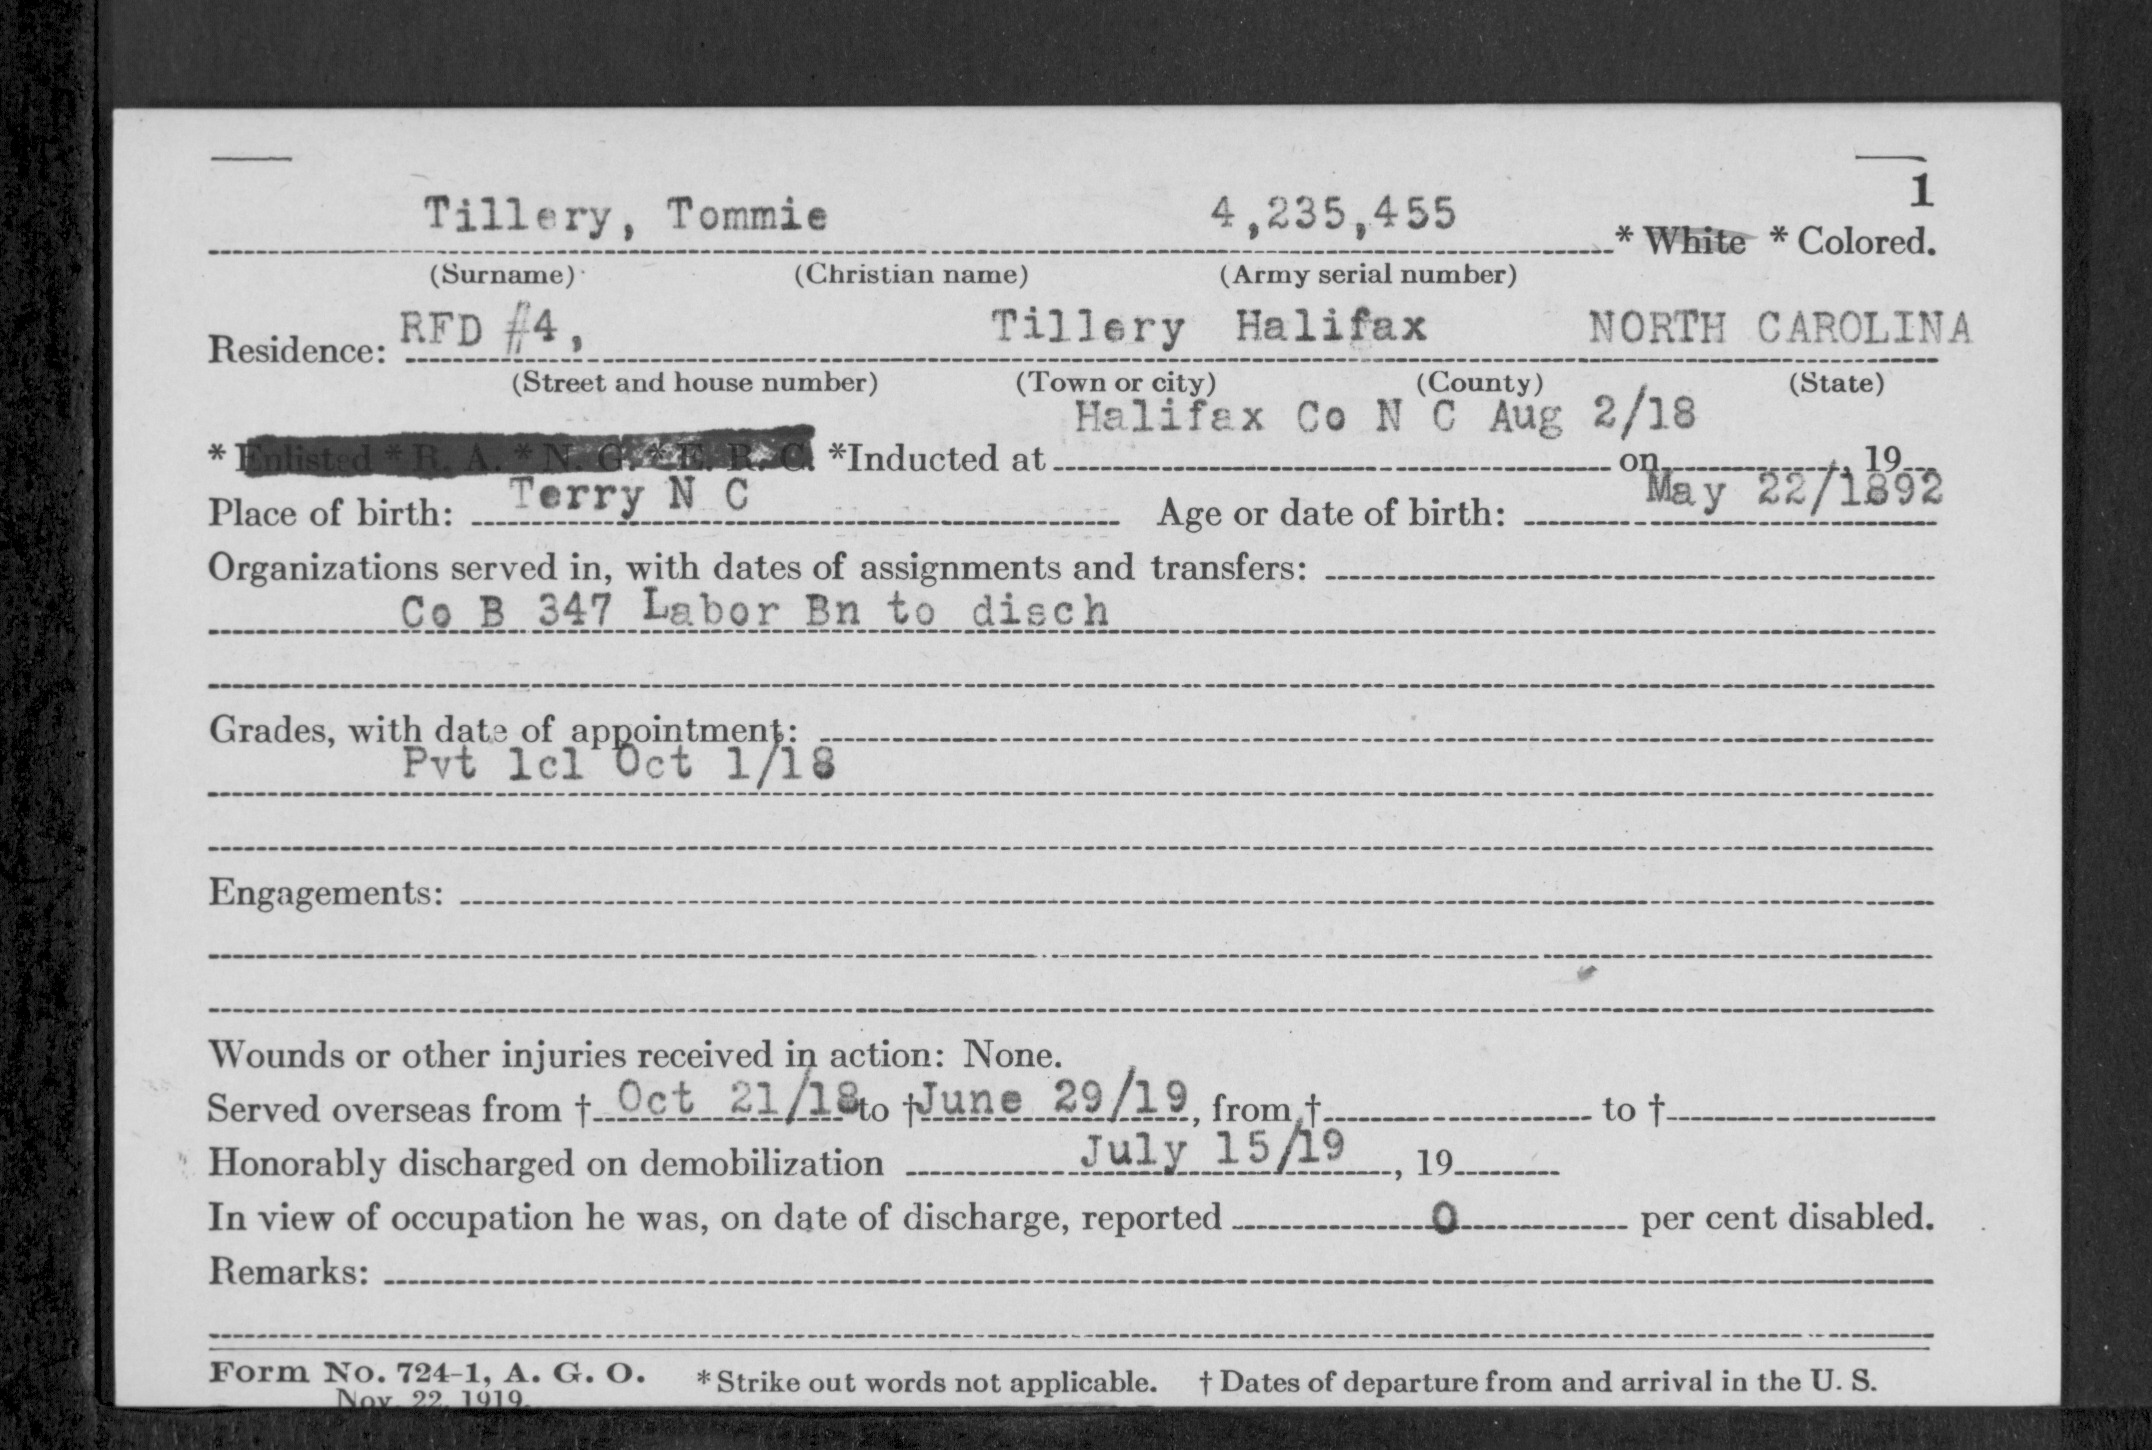 1
Tillery, Tommie 4,235,455 * White * Colored.
(Surname) (Christian name) (Army serial number)
Residence: RFD #4, Tillery Halifax NORTH CAROLINA
(Street and house number) (Town or city) (County) (State)
Halifax Co N C Aug 2/18
* Enlisted * R. A. * N. G. * E. R. C. *Inducted at on , 19
Place of birth: Terry N C Age or date of birth: May 22/1892
Organizations served in, with dates of assignments and transfers:
Co B 347 Labor Bn to disch
Grades, with date of appointment:
Pvt 1cl Oct 1/18
Engagements:
Wounds or other injuries received in action: None.
Served overseas from † Oct 21/18 to † June 29/19, from † to †
Honorably discharged on demobilization July 15/19, 19
In view of occupation he was, on date of discharge, reported 0 per cent disabled.
Remarks:
Form No. 724-1, A. G. O. * Strike out words not applicable. † Dates of departure from and arrival in the U. S.
Nov. 22, 1919.